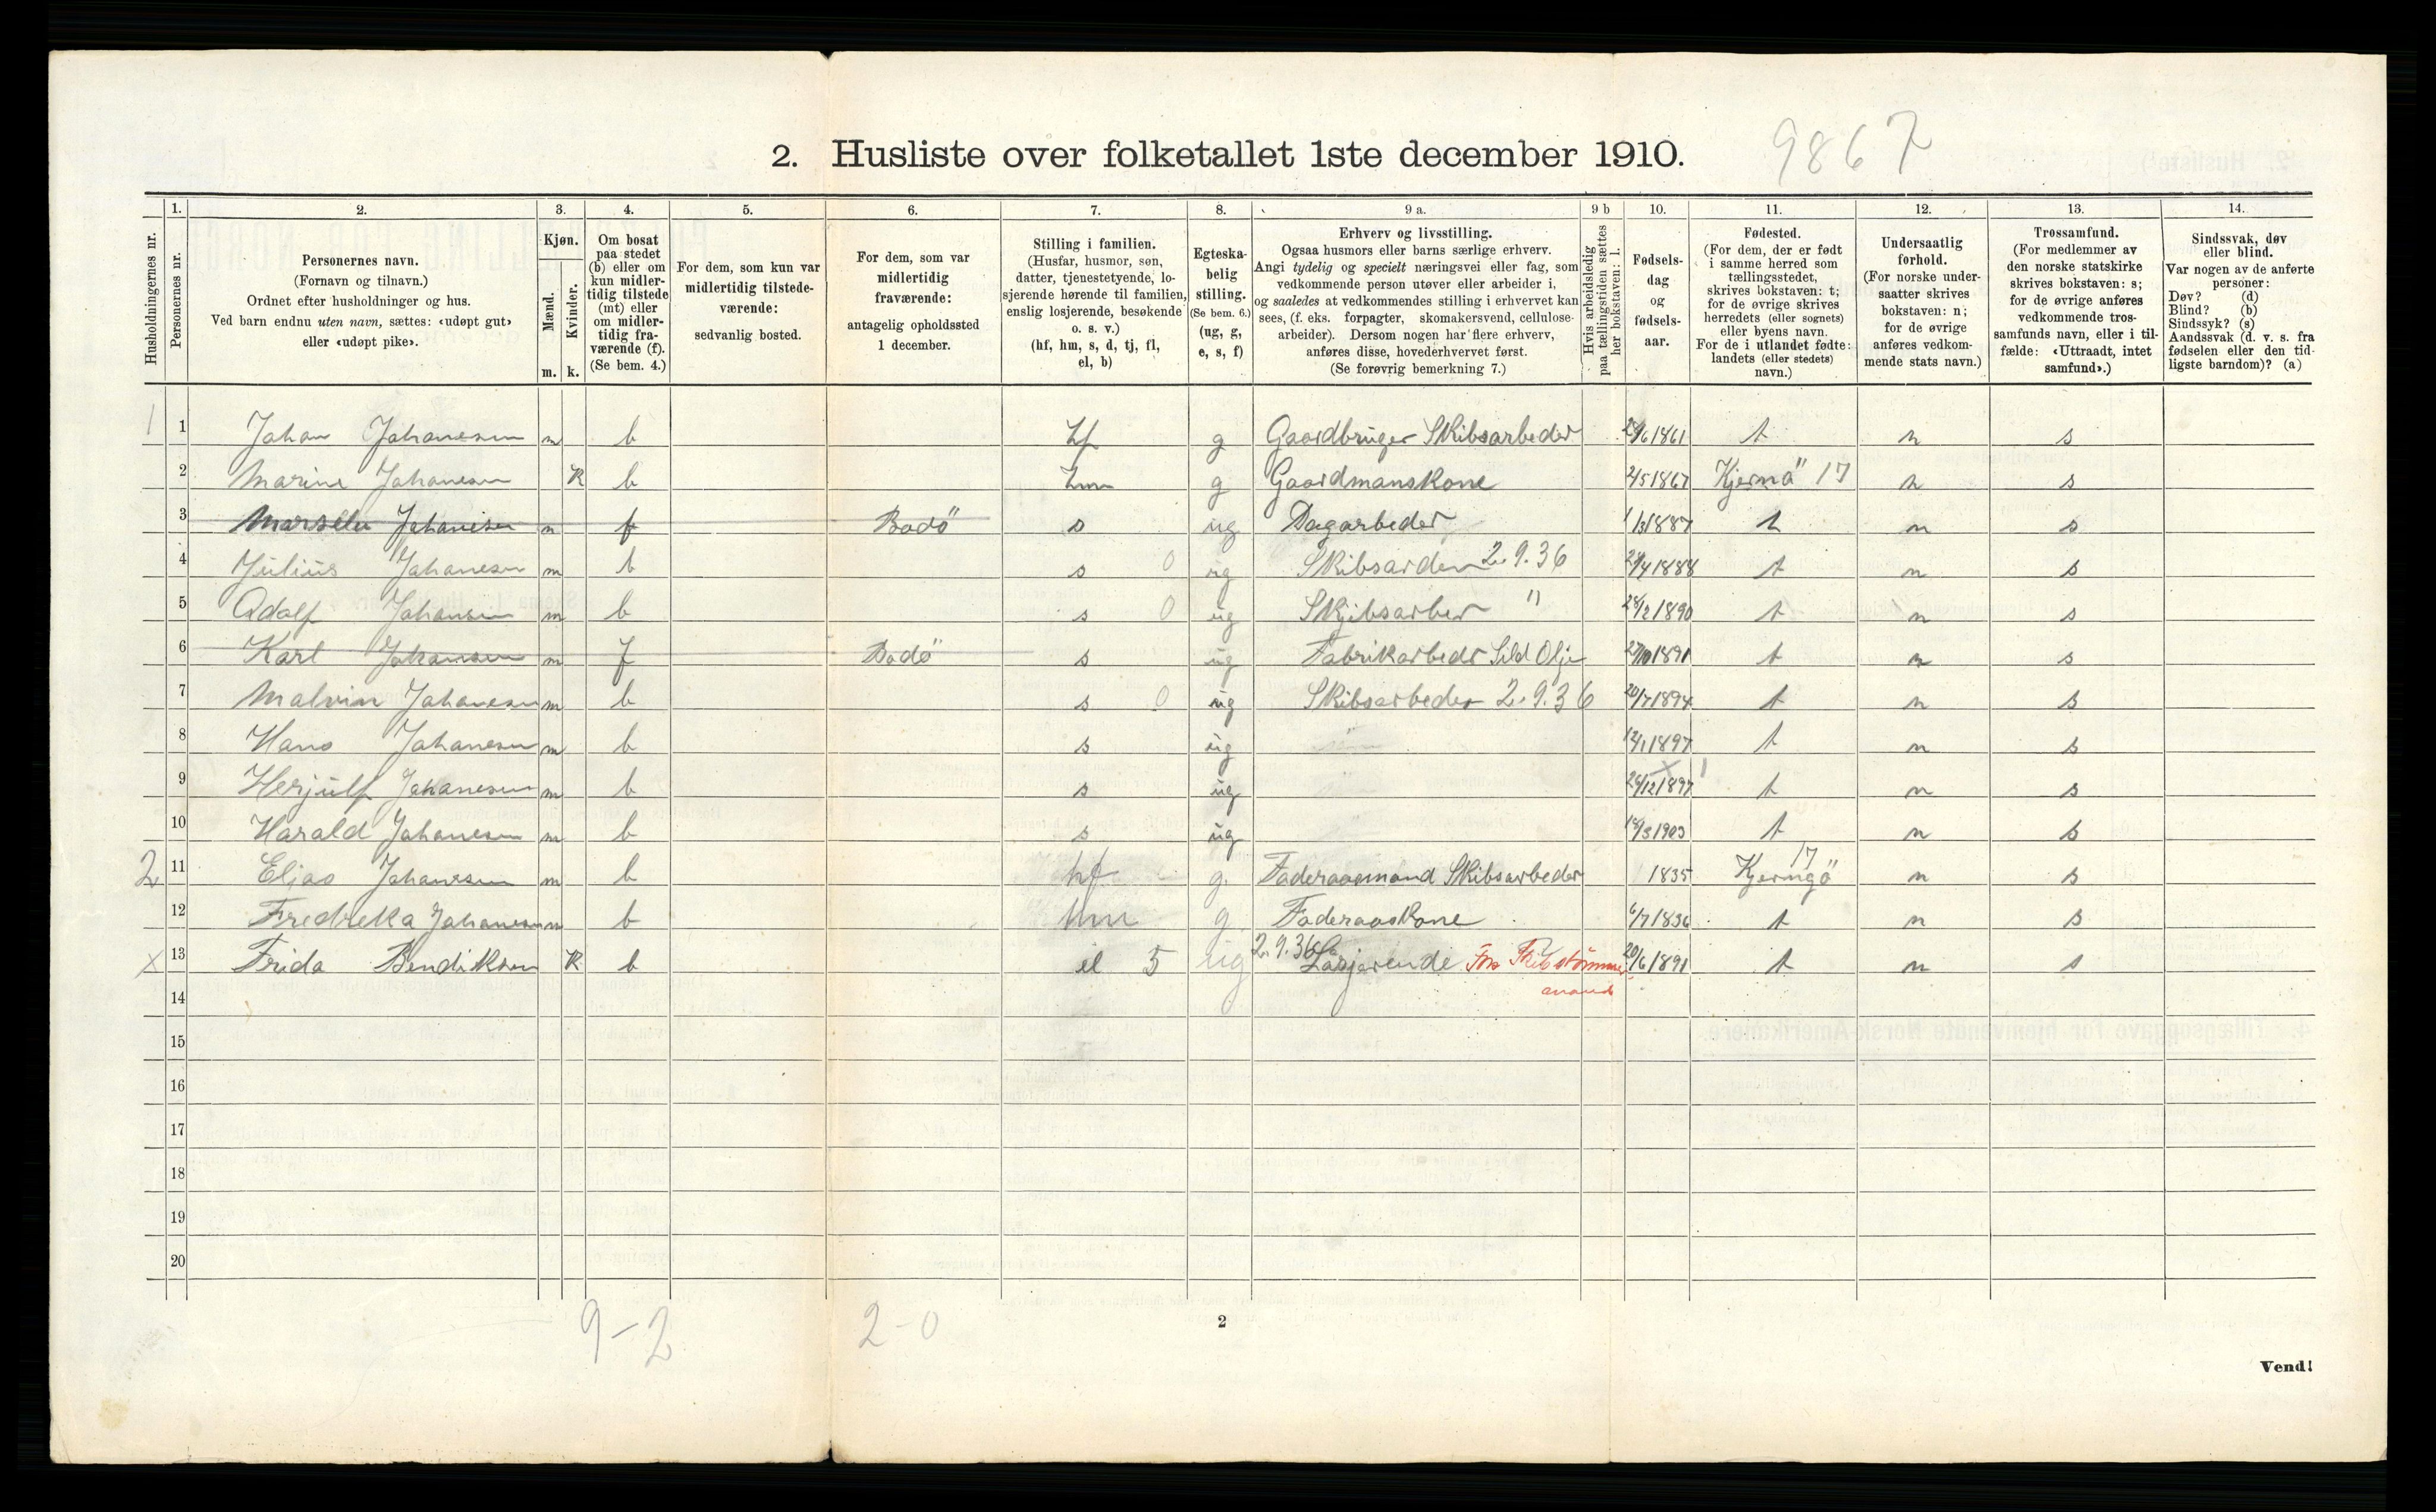 2. Husliste over folketallet 1ste december 1910. 9867
1. 2. 3. 4. 5. 6. 7. 8. 9 a. 9 b 10. 11. 12. 13. 14.
Husholdningernes nr.
Personernes nr.
Personernes navn.
(Fornavn og tilnavn.)
Ordnet efter husholdninger og hus.
Ved barn endnu uten navn, sættes: «udøpt gut»
eller «udøpt pike».
Kjøn.
Mænd.
Kvinder.
m. k.
Om bosat
paa stedet
(b) eller om
kun midler-
tidig tilstede
(mt) eller
om midler-
tidig fra-
værende (f).
(Se bem. 4.)
For dem, som kun var
midlertidig tilstede-
værende:
sedvanlig bosted.
For dem, som var
midlertidig
fraværende:
antagelig opholdssted
1 december.
Stilling i familien.
(Husfar, husmor, søn,
datter, tjenestetyende, lo-
sjerende hørende til familien,
enslig losjerende, besøkende
o. s. v.)
(hf, hm, s, d, tj, fl,
el, b)
Egteska-
belig
stilling.
(Se bem. 6.)
(ug, g,
e, s, f)
Erhverv og livsstilling.
Ogsaa husmors eller barns særlige erhverv.
Angi tydelig og specielt næringsvei eller fag, som
vedkommende person utøver eller arbeider i,
og saaledes at vedkommendes stilling i erhvervet kan
sees, (f. eks. forpagter, skomakersvend, cellulose-
arbeider). Dersom nogen har flere erhverv,
anføres disse, hovederhvervet først.
(Se forøvrig bemerkning 7.)
Hvis arbeidsledig
paa tællingstiden sættes
her bokstaven: l.
Fødsels-
dag
og
fødsels-
aar.
Fødested.
(For dem, der er født
i samme herred som
tællingsstedet,
skrives bokstaven: t;
for de øvrige skrives
herredets (eller sognets)
eller byens navn.
For de i utlandet fødte:
landets (eller stedets)
navn.)
Undersaatlig
forhold.
(For norske under-
saatter skrives
bokstaven: n;
for de øvrige
anføres vedkom-
mende stats navn.)
Trossamfund.
(For medlemmer av
den norske statskirke
skrives bokstaven: s;
for de øvrige anføres
vedkommende tros-
samfunds navn, eller i til-
fælde: «Uttraadt, intet
samfund».)
Sindssvak, døv
eller blind.
Var nogen av de anførte
personer:
Døv? (d)
Blind? (b)
Sindssyk? (s)
Aandssvak (d. v. s. fra
fødselen eller den tid-
ligste barndom)? (a)
1 1 Johan Johanesen m b hf g Gaardbruger Skibsarbeder 1861 t n s
2 Marine Johanesen K b hm g Gaardmanskone 2/5 1867 17 n s
3 Johanesen m f Bodö s ug Dagarbeder 1/3 1887 t n s
4 Julius Johanesen m b s 0 ug Skibsarder 2.9.36 1888 t n s
5 Adolf Johansen m b s 0 ug Skjibsarber " 28/2 1890 t n s
6 Karl Johansen m f Bodö s ug Fabrikarbedr Sild Olje 27/10 1891 t n s
7 Malvin Johanesen m b s 0 ug Skibsarbeder 2.9.36 20/7 1894 t n s
8 Hans Johanesen m b s ug 12/1 1897 t n s
9 Herjulf Johanesen m b s ug 1897 t n s
10 Harald Johanesen m b s ug 1903 t n s
2 11 Elias Johanesen m b hf g. Faderaasmand Skibsarbeder 1835 Kjerngö 17 n s
12 Fredreka Johanesen m b hm g Faderaaskone 6/7 1836 t n s
x 13 Frida Bendiksen K b el 5 ug 2.9.36 Losjerende 20/6 1891 t n s
14
15
16
17
18
19
20
9-2 2-0
2
Vend!